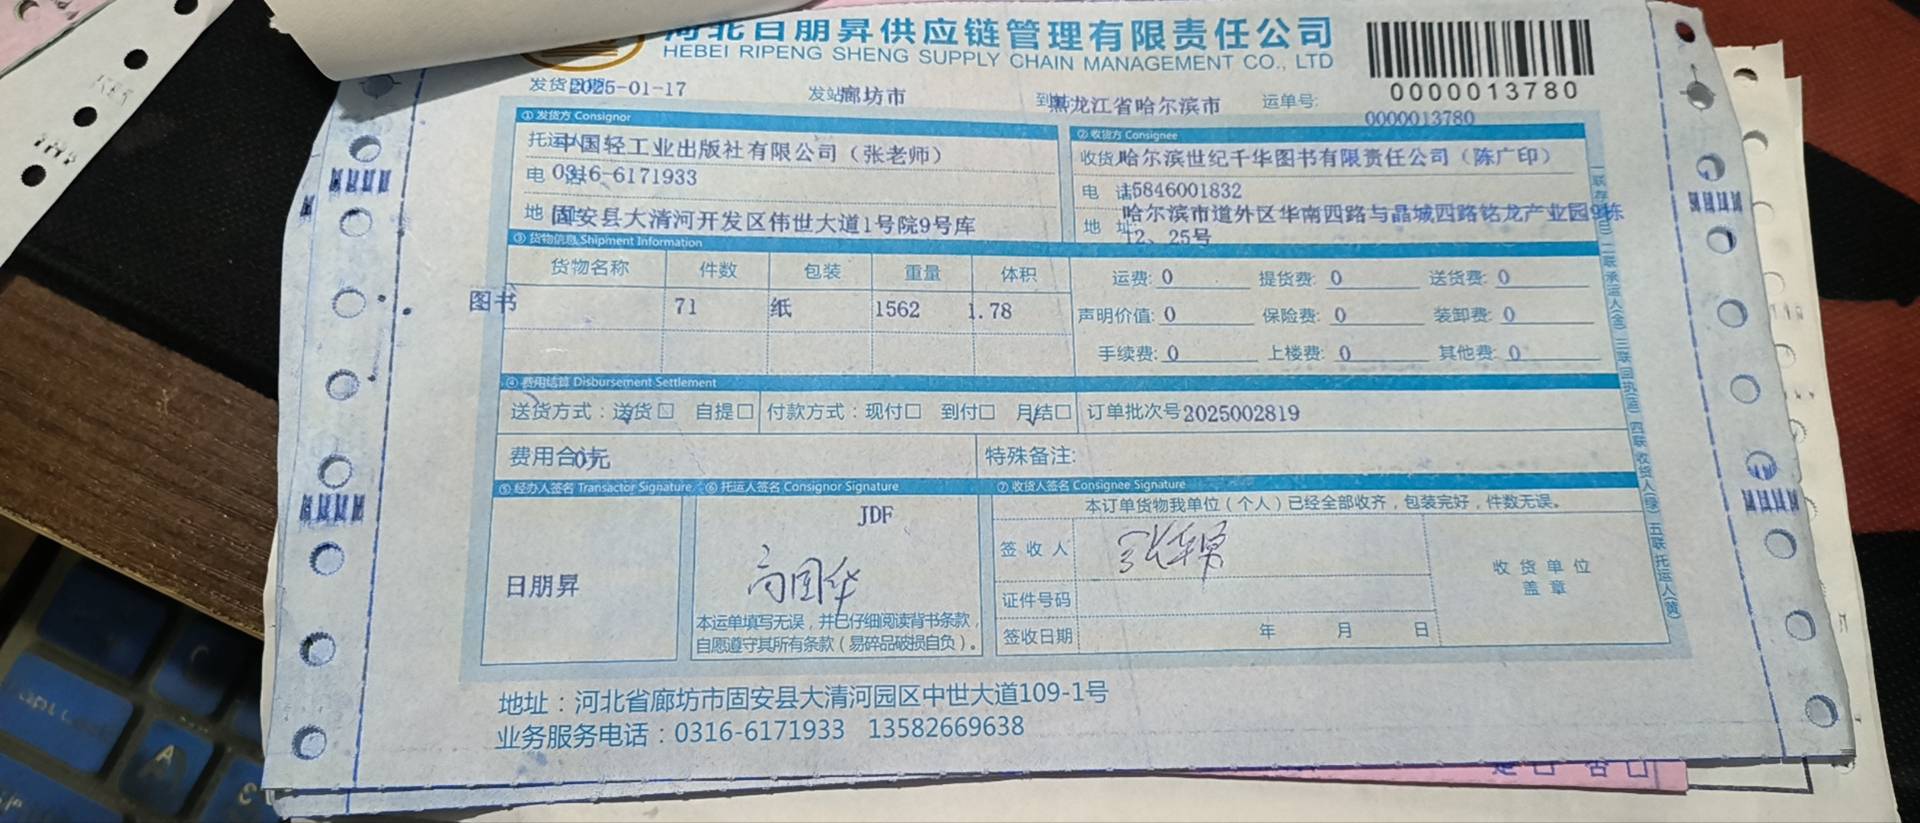 河北日朋昇供应链管理有限责任公司
HEBEI RIPENG SHENG SUPPLY CHAIN MANAGEMENT CO., LTD
0000013780
发货日期 2025-01-17 发站 廊坊市 到站 黑龙江省哈尔滨市 运单号: 0000013780
① 发货方 Consignor
托运人 中国轻工业出版社有限公司（张老师）
电 话 0316-6171933
地 址 固安县大清河开发区伟世大道1号院9号库
② 收货方 Consignee
收货人 哈尔滨世纪千华图书有限责任公司（陈广印）
电 话 15846001832
地 址 哈尔滨市道外区华南四路与晶城四路铭龙产业园9栋
12、25号
③ 货物信息 Shipment Information
货物名称 件数 包装 重量 体积
图书 71 纸 1562 1.78
运费: 0 提货费: 0 送货费: 0
声明价值: 0 保险费: 0 装卸费: 0
手续费: 0 上楼费: 0 其他费: 0
④ 费用结算 Disbursement Settlement
送货方式：送货☐ 自提☐ 付款方式：现付☐ 到付☐ 月结☐ 订单批次号 2025002819
费用合计 0元 特殊备注:
⑤ 经办人签名 Transactor Signature
日朋昇
⑥ 托运人签名 Consignor Signature
JDF
高国华
本运单填写无误，并已仔细阅读背书条款，
自愿遵守其所有条款（易碎品破损自负）。
⑦ 收货人签名 Consignee Signature
本订单货物我单位（个人）已经全部收齐，包装完好，件数无误。
签 收 人
证件号码
签收日期 年 月 日
收 货 单 位
盖 章
地址：河北省廊坊市固安县大清河园区中世大道109-1号
业务服务电话：0316-6171933 13582669638